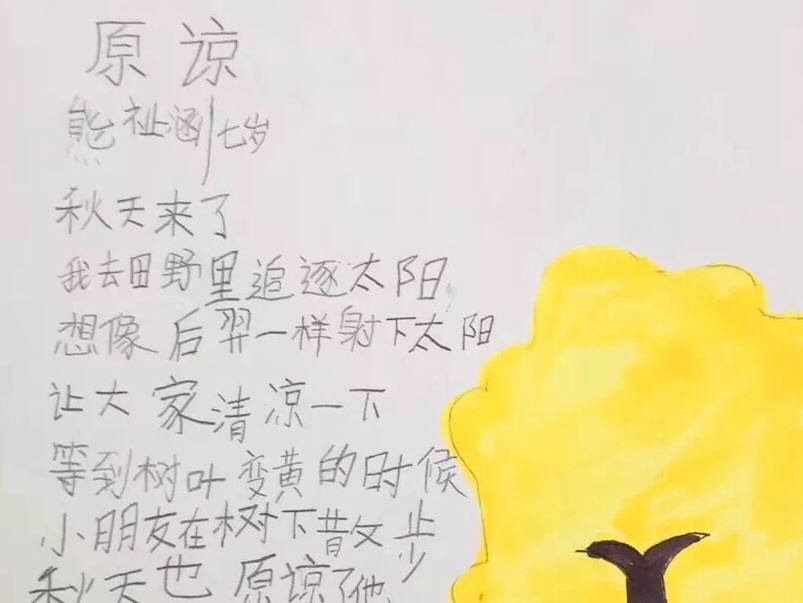 原谅
熊祉涵 七岁
秋天来了
我去田野里追逐太阳
想像后羿一样射下太阳
让大家清凉一下
等到树叶变黄的时候
小朋友在树下散步
秋天也原谅了他